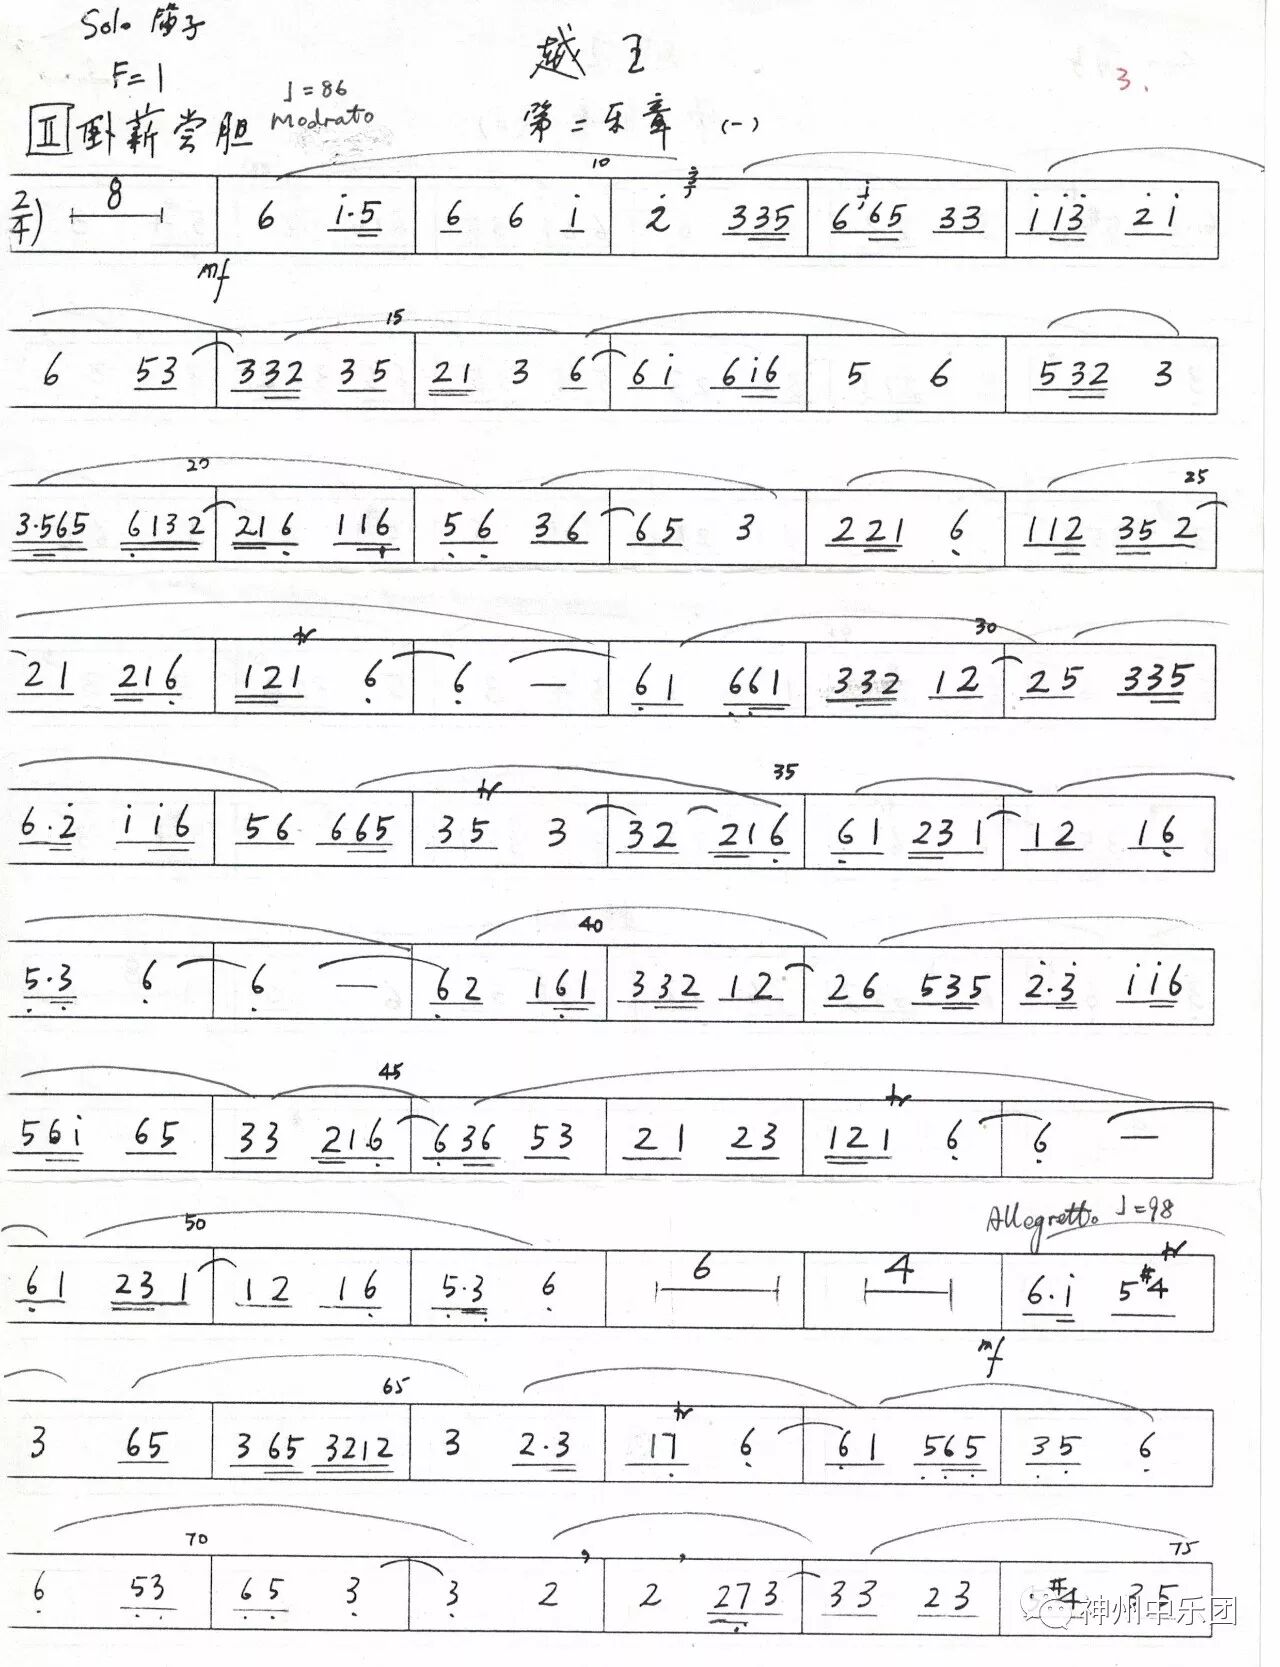 Solo 笛子
越王
3.
F=1
♩=86
Modrato
II 卧薪尝胆
第二乐章 (一)
10
2/4) 8 | 6 i·5 | 6 6 i | 2 335 | 6 65 33 | i i3 2 i
mf
15
6 53 | 332 35 | 21 3 6 | 6i 6i6 | 5 6 | 532 3
20 25
3·565 6132 | 216 116 | 56 36 | 65 3 | 221 6 | 112 352
tr 30
21 216 | 121 6 | 6 — | 61 661 | 332 12 | 25 335
tr 35
6·2 ii6 | 56 665 | 35 3 | 32 216 | 61 231 | 12 16
40
5·3 6 | 6 — | 62 161 | 332 12 | 26 535 | 2·3 ii6
45 tr
56i 65 | 33 216 | 636 53 | 21 23 | 121 6 | 6 —
50 Allegretto ♩=98 tr
61 231 | 12 16 | 5·3 6 | 6 | 4 | 6·i 5#4
mf
65 tr
3 65 | 365 3212 | 3 2·3 | 17 6 | 61 565 | 35 6
70 75
6 53 | 65 3 | 3 2 , | 2 , 273 | 33 23 | #4 35
神州中乐团